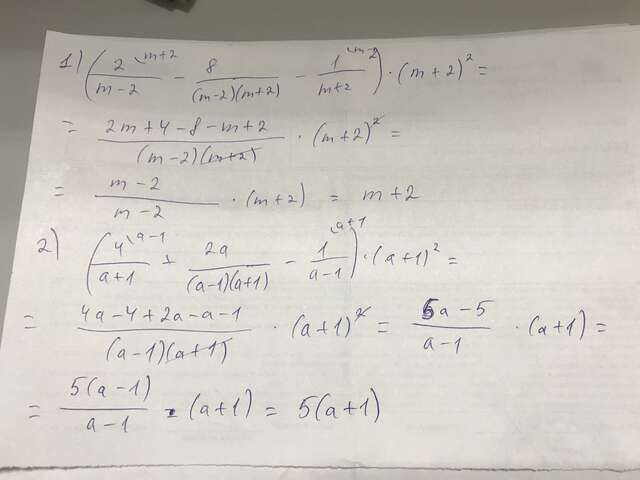 1) (2/(m-2) \m+2 - 8/((m-2)(m+2)) - 1/(m+2) \m-2) · (m+2)² =
= (2m+4-8-m+2)/((m-2)(m+2)) · (m+2)² =
= (m-2)/(m-2) · (m+2) = m+2
2) (4/(a+1) \a-1 + 2a/((a-1)(a+1)) - 1/(a-1) \a+1) · (a+1)² =
= (4a-4+2a-a-1)/((a-1)(a+1)) · (a+1)² = (5a-5)/(a-1) · (a+1) =
= 5(a-1)/(a-1) · (a+1) = 5(a+1)